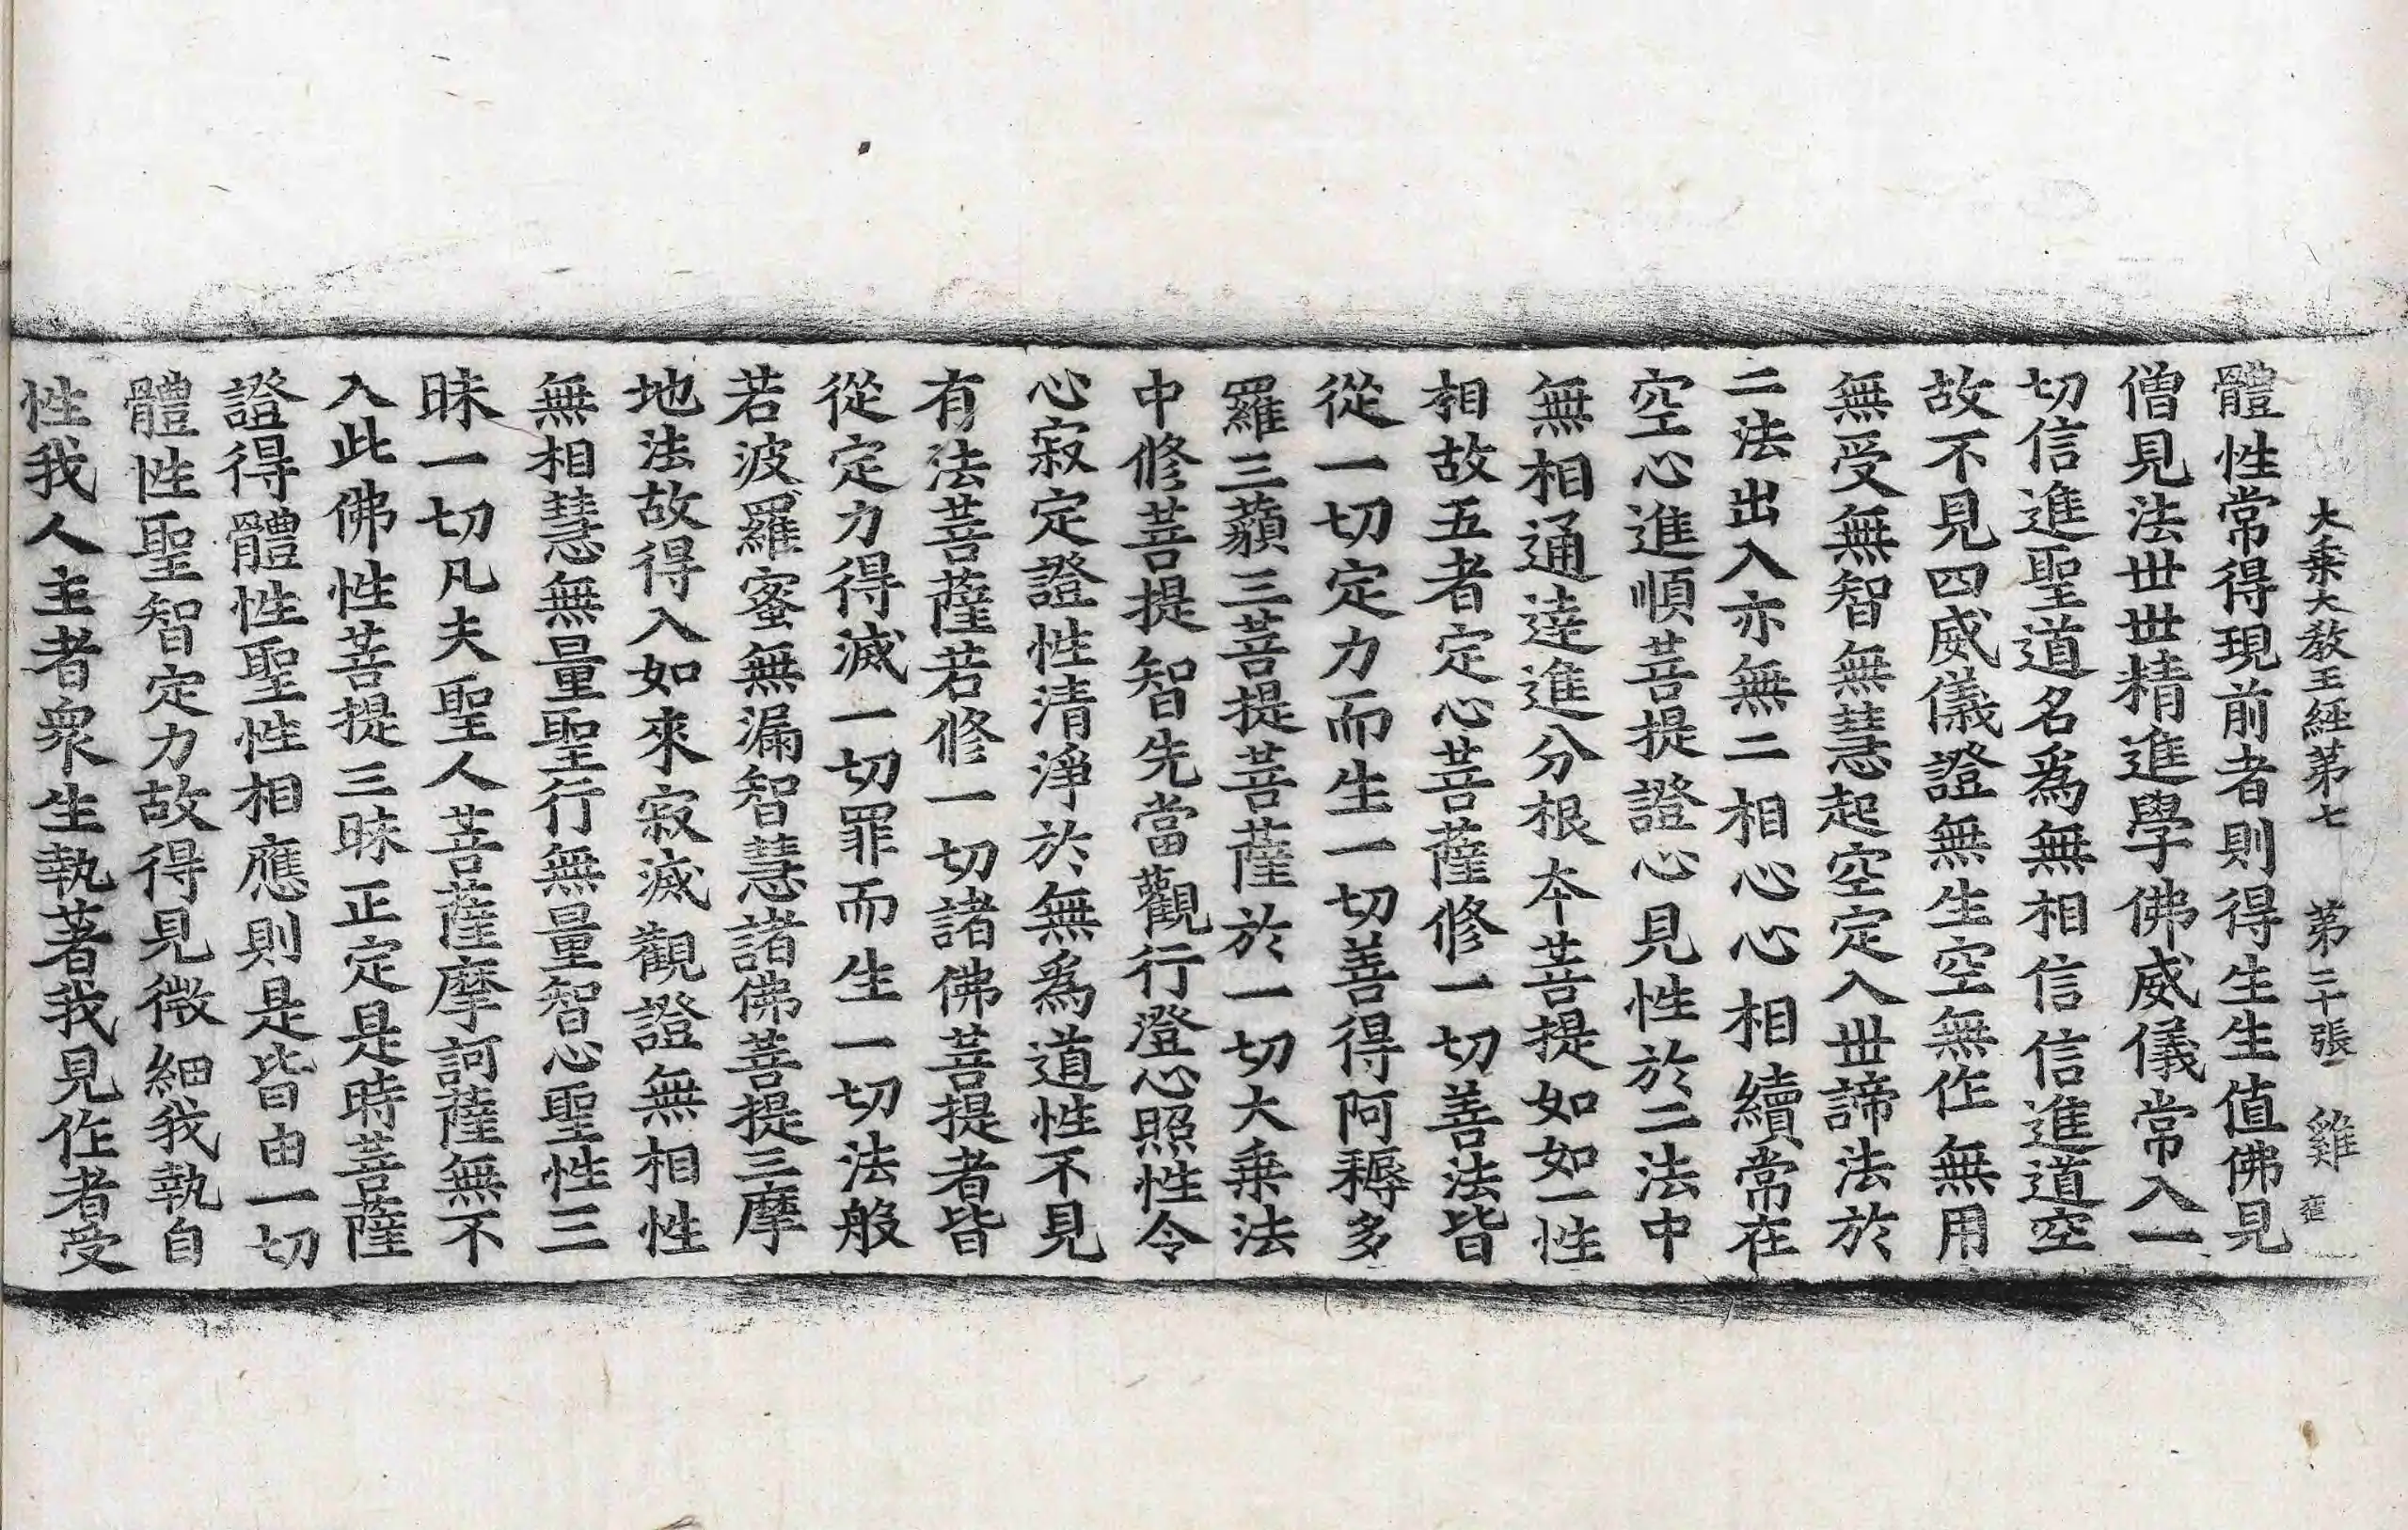 大乗大教王經第七　第二十張　雞
體性常得現前者則得生生值佛見
僧見法世世精進學佛威儀常入一
切信進聖道名爲無相信信進道空
故不見四威儀證無生空無作無用
無受無智無慧起空定入世諦法於
二法出入亦無二相心心相續常在
空心進順菩提證心見性於二法中
無相通達進分根本菩提如如一性
相故五者定心菩薩修一切善法皆
從一切定力而生一切善得阿耨多
羅三藐三菩提菩薩於一切大乗法
中修菩提智先當觀行澄心照性令
心寂定證性清淨於無爲道性不見
有法菩薩若修一切諸佛菩提者皆
從定力得滅一切罪而生一切法般
若波羅蜜無漏智慧諸佛菩提三摩
地法故得入如來寂滅觀證無相性
無相慧無量聖行無量智心聖性三
昧一切凡夫聖人菩薩摩訶薩無不
入此佛性菩提三昧正定是時菩薩
證得體性聖性相應則是皆由一切
體性聖智定力故得見微細我執自
性我人主者衆生執著我見作者受